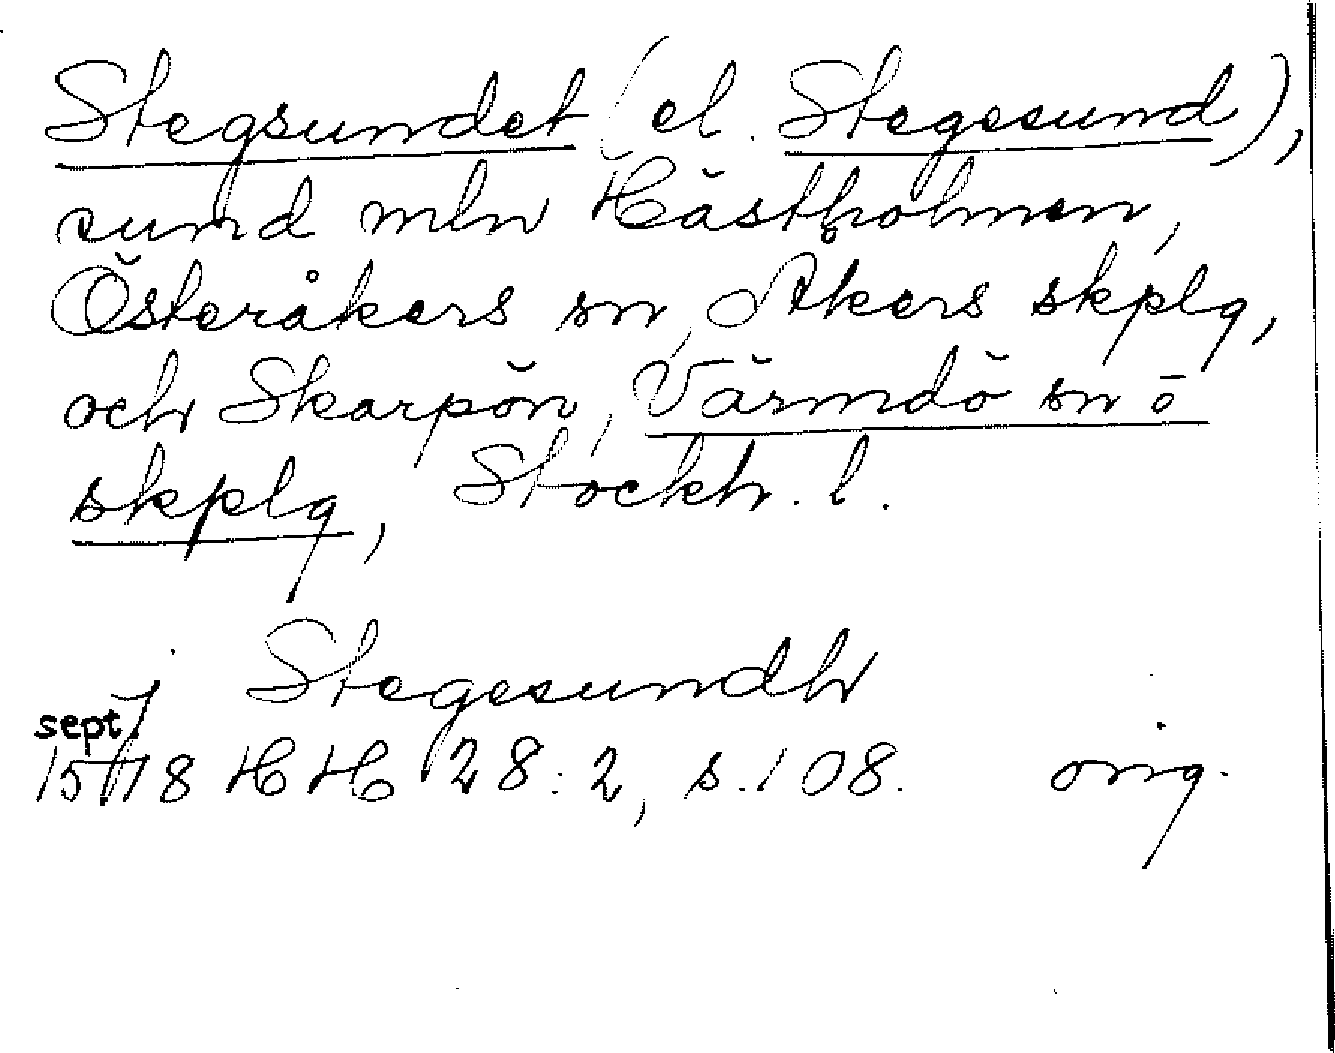 Stegsundet (el. Stegesund),
sund mln Hästholmen,
Österåkers sn, Åkers skplg,
och Skarpön, Värmdö sn o
skplg, Stockh. l.
j Stegesundh
sept.
1578 HH 28:2, s. 108. orig.